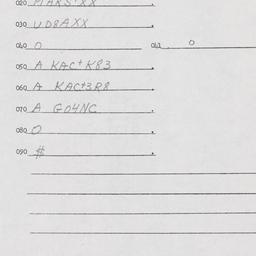 020 MARS+XX .
030 UD8AXX .
040 O 041 O
050 A KAC+K83 .
060 A KAC+3R8 .
070 A GO4NC .
080 O .
090 # .